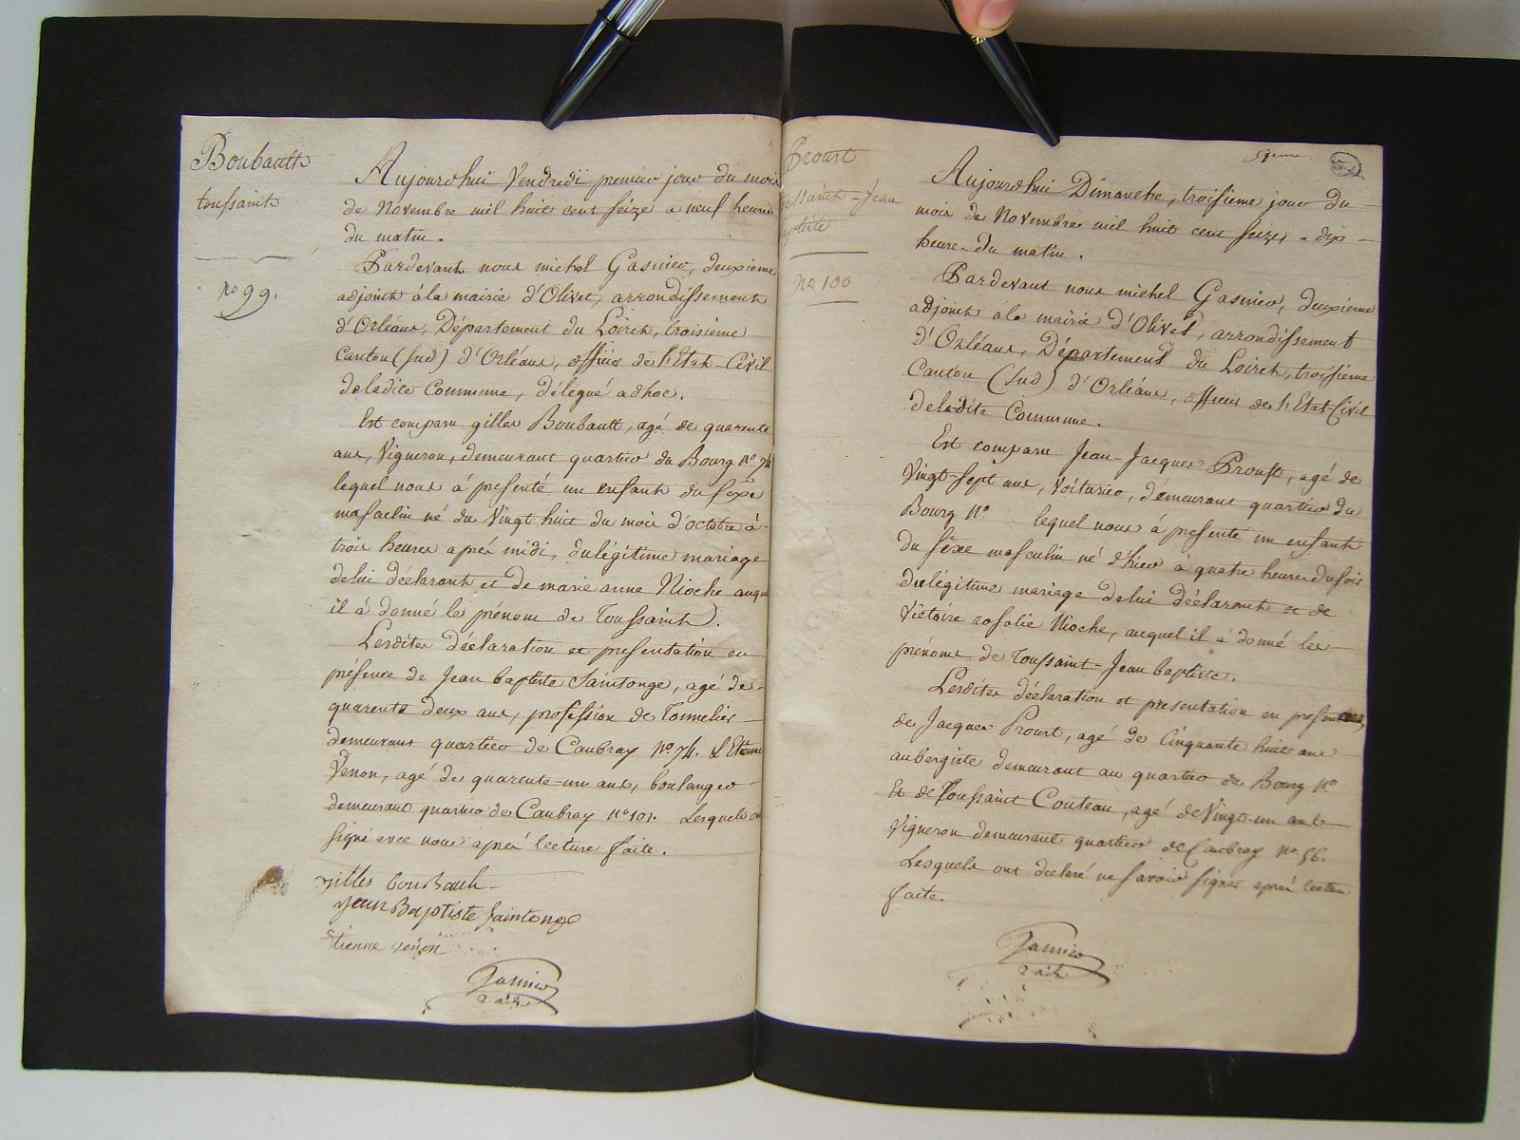 Boubault
toussaint
no 99.
Aujourdhui Vendredi premier jour du mois
de Novembre mil huit cent seize a neuf heures
du matin.
Pardevant nous michel Gasnier, deuxieme
adjoint à la mairie d'Olivet, arrondissement
d'Orléans, Département du Loiret, troisième
Canton (sud) d'Orléans, officier de l'Etat-Civil
deladite Commune, délegué adhoc.
Est comparu gilles Boubault, agé de quarente
ans, Vigneron, demeurant quartier du Bourg No 74
lequel nous à presenté un enfant du sexe
masculin né du Vingt huit du mois d'octobre à
trois heures aprés midi, du légitime mariage
de lui déclarant et de marie anne Nioche auquel
il à donné le prénom de Toussaint.
Lesdites déclaration et presentation en
présence de Jean baptiste Saintonge, agé de
quarente deux ans, profession de Tonnelier
demeurant quartier de Caubray No 74. & Etienne
Venon, agé de quarente-un ans, boulanger
demeurant quartier de Caubray No 101. Lesquels ont
signé avec nous aprés lecture faite.
gilles bouBault
jean Baptiste Saintonge
Etienne venon
Gasnier
adjt
Proust
Toussaint-Jean
baptiste
No 100
Aujourdhui Dimanche, troisieme jour du
mois de Novembre mil huit cent seize, a dix
heures du matin.
Pardevant nous michel Gasnier, deuxieme
adjoint à la mairie d'Olivet, arrondissement
d'Orléans, Département du Loiret, troisieme
Canton (sud) d'Orléans, officier de l'Etat-Civil
deladite Commune.
Est comparu Jean-Jacques Proust, agé de
Vingt-sept ans, Voiturier, demeurant quartier du
Bourg No lequel nous à presenté un enfant
du séxe masculin né d'hier à quatre heures du soir
du légitime mariage de lui déclarant et de
Victoire rosalie Nioche, auquel il à donné les
prénoms de Toussaint-Jean baptiste.
Lesdites déclaration et presentation en presence
de Jacques Proust, agé de Cinquante huit ans
aubergiste demeurant au quartier du Bourg No
Et de Toussaint Couteau, agé de Vingt-un ans
Vigneron demeurant quartier de Caubray no 56.
Lesquels ont déclaré ne savoir signer aprés lecture
faite.
Gasnier
adjt